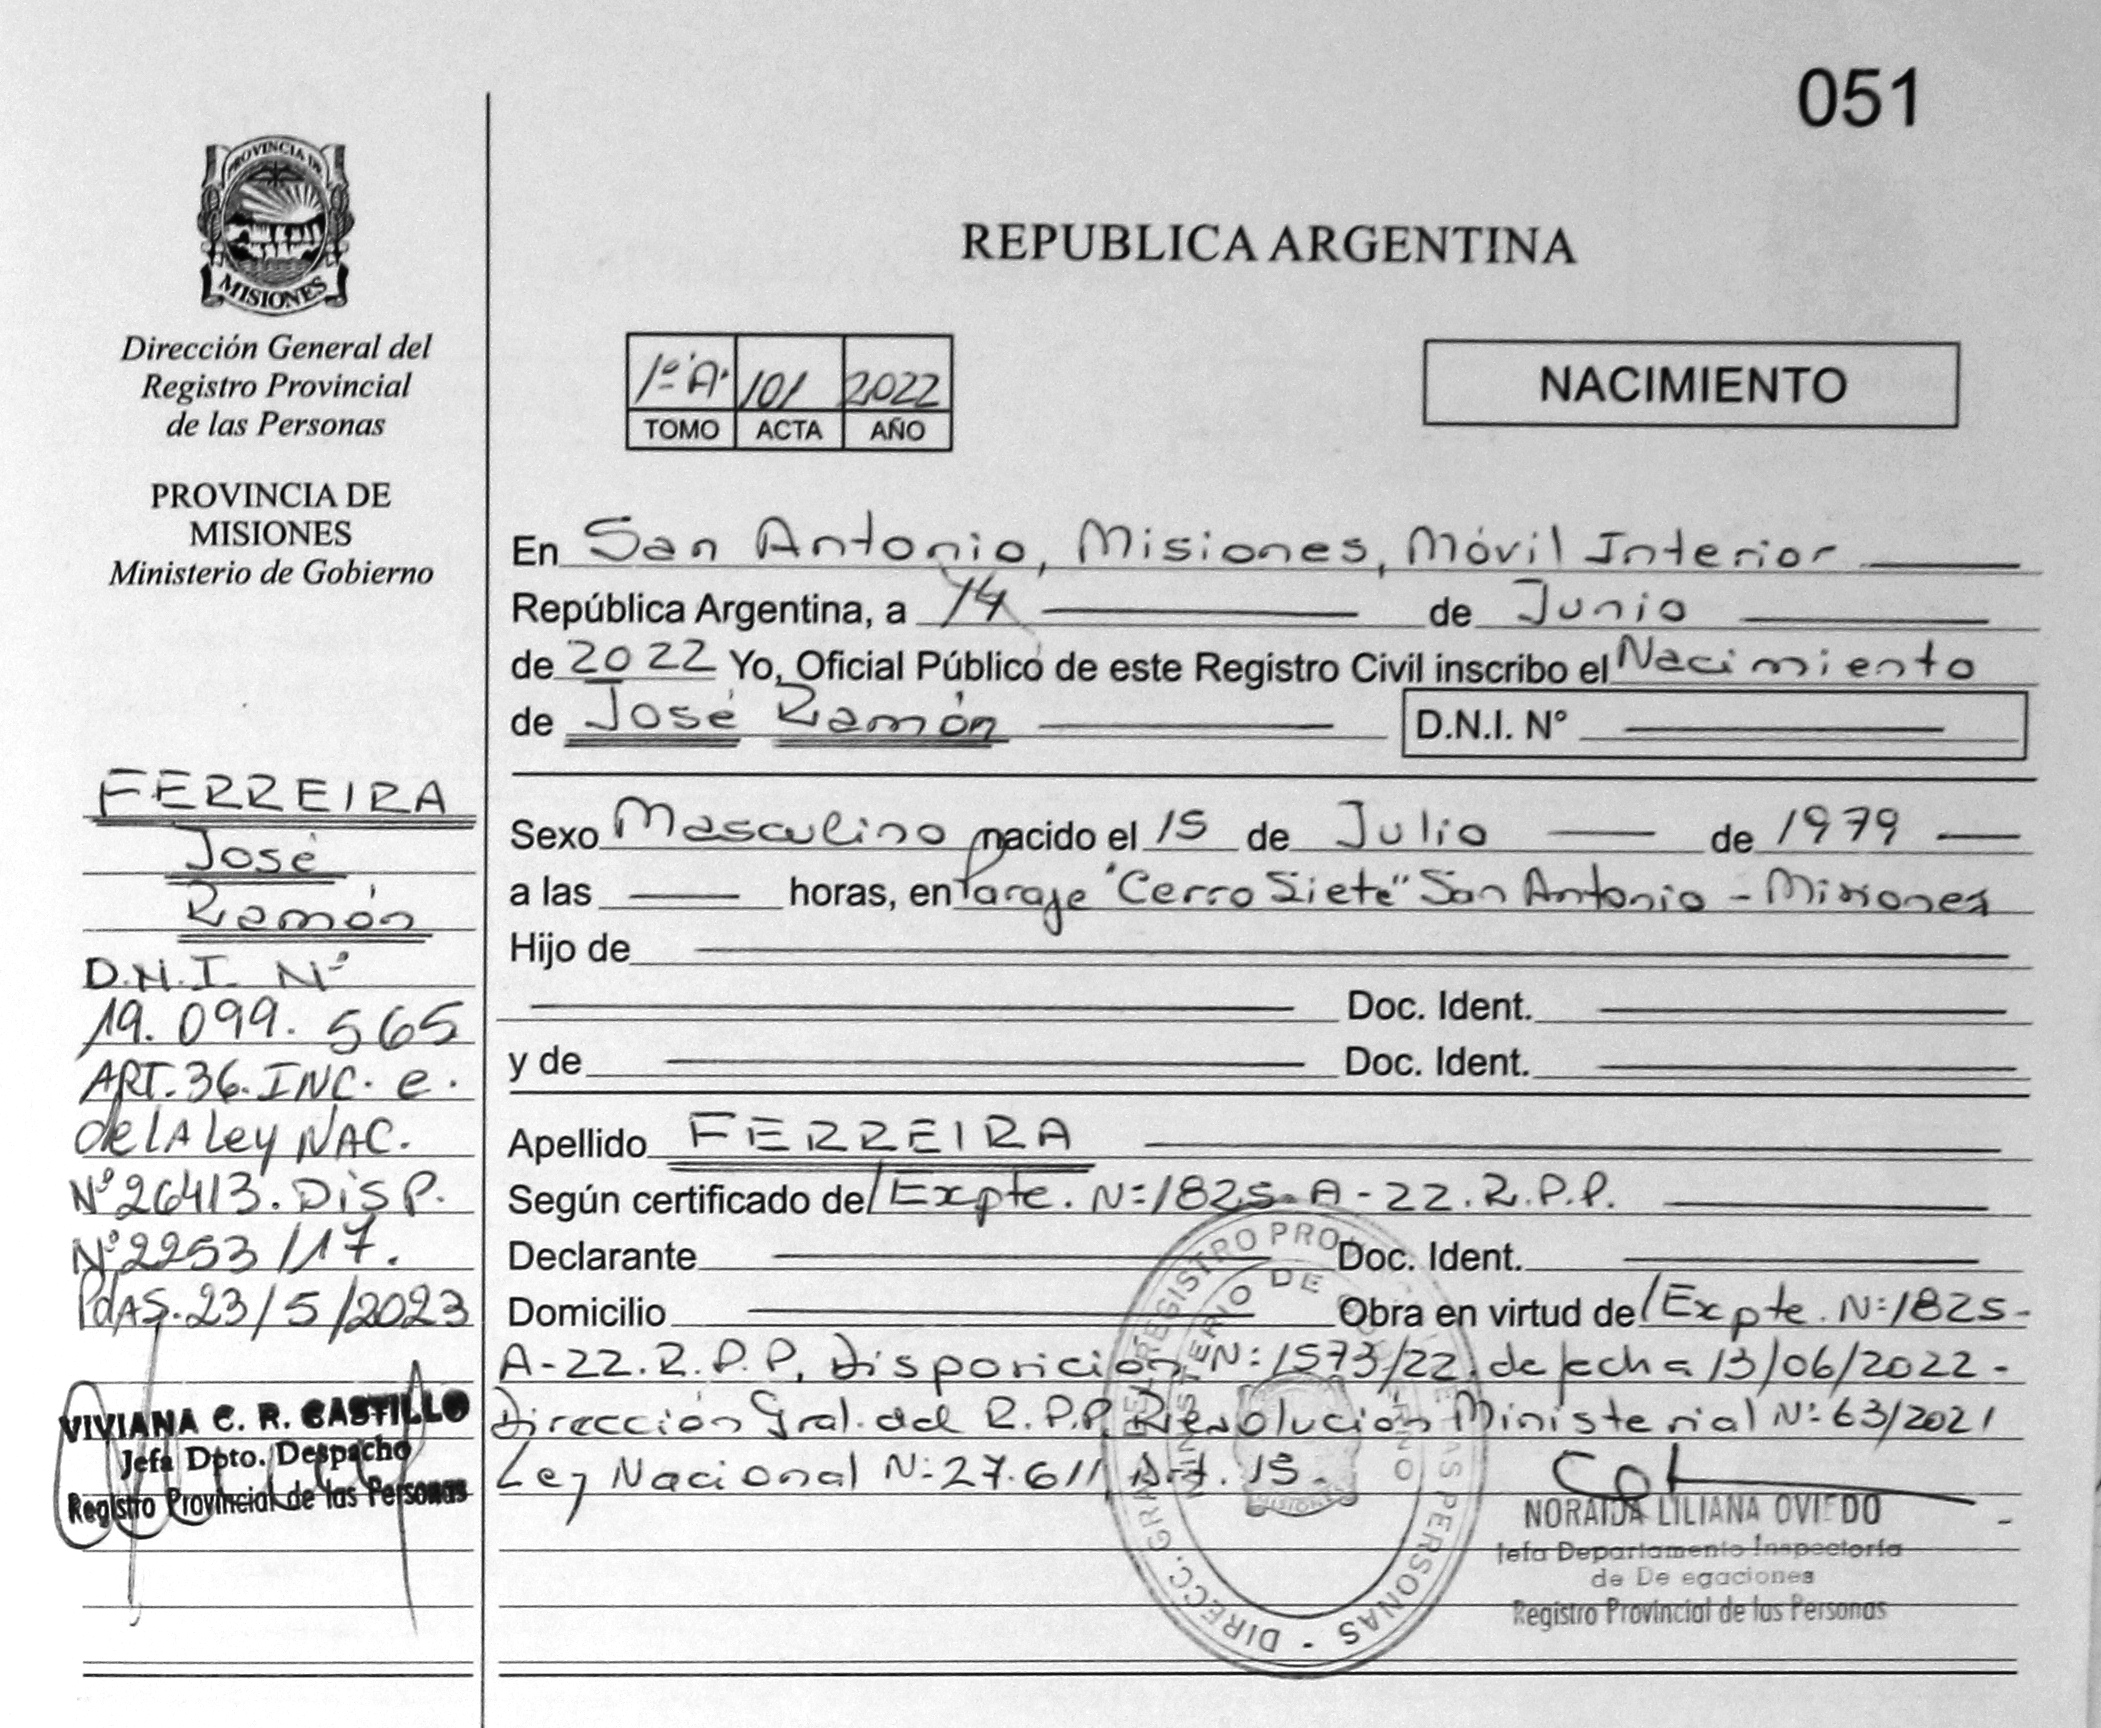 051
PROVINCIA DE
MISIONES
Dirección General del
Registro Provincial
de las Personas
PROVINCIA DE
MISIONES
Ministerio de Gobierno
FERREIRA
José
Ramón
D.N.I. Nº
19.099.565
ART.36.INC. e.
de LA Ley NAC.
Nº26413. DISP.
Nº2253/17.
PdAS.23/5/2023
VIVIANA C. R. CASTILLO
Jefa Dpto. Despacho
Registro Provincial de las Personas
REPUBLICA ARGENTINA
1º A 101 2022
TOMO ACTA AÑO
NACIMIENTO
En San Antonio, Misiones, Móvil Interior
República Argentina, a 14 de Junio
de 2022 Yo, Oficial Público de este Registro Civil inscribo el Nacimiento
de José Ramón D.N.I. N°
Sexo Masculino nacido el 15 de Julio de 1979
a las horas, en Paraje "Cerro Siete" San Antonio - Misiones
Hijo de
Doc. Ident.
y de Doc. Ident.
Apellido FERREIRA
Según certificado de/Expte. Nº1825-A-22.R.P.P.
Declarante Doc. Ident.
Domicilio Obra en virtud de/Expte. Nº1825-
A-22.R.P.P, Disposición Nº1573/22, de fecha 13/06/2022-
Dirección Gral. del R.P.P, Resolución Ministerial Nº63/2021
Ley Nacional Nº27.611, Art. 15.
DIRECC. GRAL. DEL REGISTRO PROV. DE LAS PERSONAS
MINISTERIO DE GOBIERNO
MISIONES
NORAIDA LILIANA OVIEDO
Jefa Departamento Inspectoría
de De egaciones
Registro Provincial de las Personas